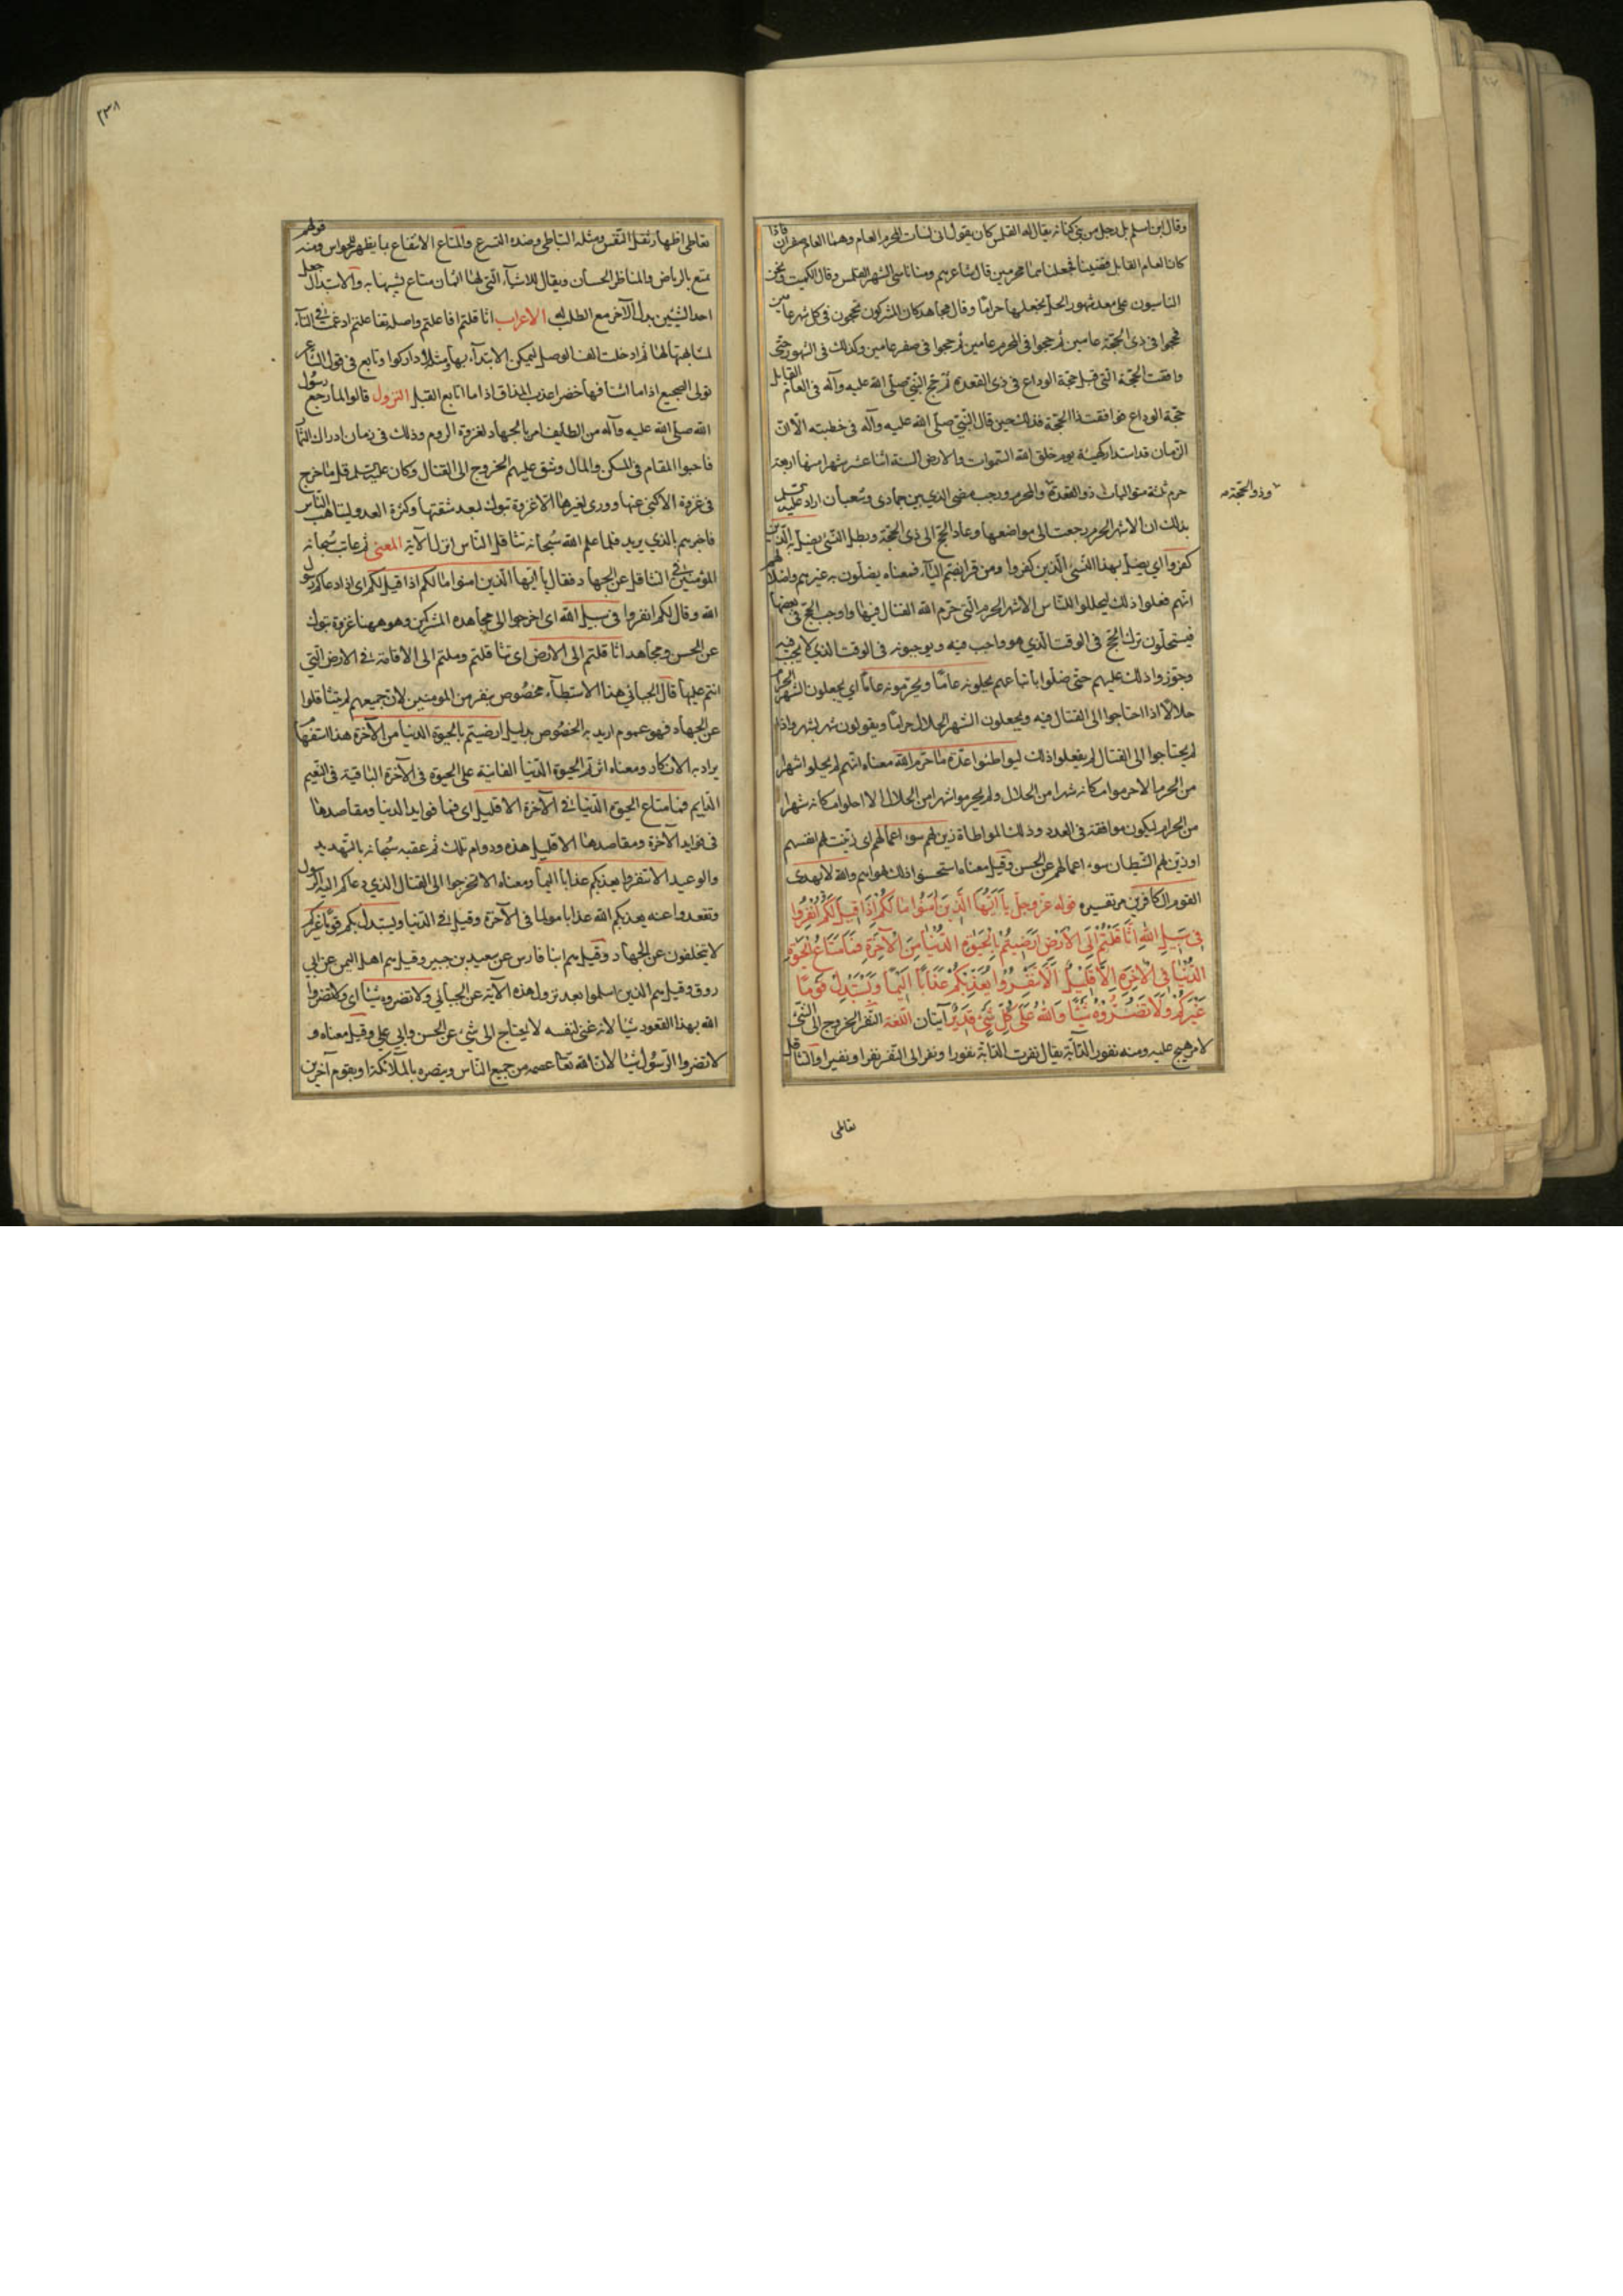 وقال ابن اسلم بل رجل من بني كنانة يقال له القلمس كان يقول اني نسات المحرم العام وهما العام صفران فاذا
كان العام القابل قضينا فجعلناهما محرمين قال شاعرهم ومنا ناسي الشهر القلمس وقال الكميت ونحن
الناسيون على معد شهور الحل نجعلها حراما وقال مجاهد كان المشركون يحجون في كل شهر عامين
فحجوا في ذي الحجة عامين ثم حجوا في المحرم عامين ثم حجوا في صفر عامين وكذلك في الشهور حتى
وافقت الحجة التي قبل حجة الوداع في ذي القعدة ثم حج النبي صلى الله عليه وآله في العام القابل
حجة الوداع فوافقت ذا الحجة فذلك حين قال النبي صلى الله عليه وآله في خطبته الا ان
الزمان قد استدار كهيئة يوم خلق الله السموات والارض السنة اثنا عشر شهرا منها اربعة
حرم ثلثة متواليات ذو القعدة والمحرم ورجب مضر الذي بين جمادى وشعبان اراد عليه السلم
وذو الحجة
بذلك ان الاشهر الحرم رجعت الى مواضعها وعاد الحج الى ذي الحجة وبطل النسئ يضل به الذين
كفروا اي يضل بهذا النسئ الذين كفروا ومن قرا بضم الياء فمعناه يضلون به غيرهم واضلالهم
انهم فعلوا ذلك ليحللوا للناس الاشهر الحرم التي حرم الله القتال فيها واوجب الحج في بعضها
فيستحلون ترك الحج في الوقت الذي هو واجب فيه ويوجبونه في الوقت الذي لا يجب فيه
وجوزوا ذلك عليهم حتى ضلوا باتباعهم يحلونه عاما ويحرمونه عاما اي يجعلون الشهر الحرام
حلالا اذا احتاجوا الى القتال فيه ويجعلون الشهر الحلال حراما ويقولون شهر بشهر واذا
لم يحتاجوا الى القتال لم يفعلوا ذلك ليواطئوا عدة ما حرم الله معناه انهم لم يحلوا شهرا
من الحرم الا حرموا مكانه شهرا من الحلال ولم يحرموا شهرا من الحلال الا احلوا مكانه شهرا
من الحرام ليكون موافقة في العدد وذلك المواطاة زين لهم سوء اعمالهم اي زينت لهم انفسهم
او زين لهم الشيطان سوء اعمالهم عن الحسن وقيل معناه استحسنوا ذلك هواهم والله لا يهدى
القوم الكافرين مر تفسيره قوله عز وجل يَا اَيُّهَا الَّذِينَ اٰمَنُوا مَا لَكُمْ اِذَا قِيلَ لَكُمُ انْفِرُوا
فِي سَبِيلِ اللهِ اثَّاقَلْتُمْ اِلَى الْاَرْضِ اَرَضِيتُمْ بِالْحَيٰوةِ الدُّنْيَا مِنَ الْآخِرَةِ فَمَا مَتَاعُ الْحَيٰوةِ
الدُّنْيَا فِي الْاٰخِرَةِ اِلَّا قَلِيلٌ اَلَّا تَنْفِرُوا يُعَذِّبْكُمْ عَذَابًا اَلِيمًا وَيَسْتَبْدِلْ قَوْمًا
غَيْرَكُمْ وَلَا تَضُرُّوهُ شَيْئًا وَاللهُ عَلَى كُلِّ شَيْءٍ قَدِيرٌ آيتان اللغة النفر الخروج الى الشئ
لامر هيج عليه ومنه نفور الدابة يقال نفرت الدابة نفورا ونفر الى الثغر نفرا ونفيرا والتثاقل
تعاطى
٢٣٨
تعاطى اظهار ثقل النفس ومثله التباطي وضده التسرع والمتاع الانتفاع بما يظهر للحواس ومنه قولهم
تمتع بالرياض والمناظر الحسان ويقال للاشياء التي لها اثمان متاع تشبيها به والاستبدال جعل
احد الشيئين بدل الآخر مع الطلب له الاعراب اثاقلتم افاعلتم واصله تفاعلتم ادغمت التاء في الثاء
لمناسبتها لها ثم ادخلت الف الوصل ليمكن الابتداء بها ومثله اداركوا واتابع في قول الشاعر
تولى الضجيع اذا ما اشتافها خضرا عذب المذاق اذا ما اتابع القبل النزول قالوا لما رجع رسول
الله صلى الله عليه وآله من الطايف امر بالجهاد لغزوة الروم وذلك في زمان ادراك الثمار
فاحبوا المقام في المسكن والمال وشق عليهم الخروج الى القتال وكان عليه السلم قل ما خرج
في غزوة الا كنى عنها وورى لغيرها الا غزوة تبوك لبعد شقتها وكثرة العدو ليتاهب الناس
فاخبرهم بالذي يريد فلما علم الله سبحانه تثاقل الناس انزل الآية المعنى ثم عاتب سبحانه
المؤمنين في التثاقل عن الجهاد فقال يا ايها الذين امنوا ما لكم اذا قيل لكم اي اذا دعاكم رسول
الله وقال لكم انفروا في سبيل الله اي اخرجوا الى مجاهدة المشركين وهو ههنا غزوة تبوك
عن الحسن ومجاهد اثاقلتم الى الارض اي تثاقلتم وملتم الى الاقامة في الارض التي
انتم عليها قال الجبائي هذا الاستبطاء مخصوص بنفر من المومنين لان جميعهم لم يتثاقلوا
عن الجهاد فهو عموم اريد به الخصوص بدليل ارضيتم بالحيوة الدنيا من الآخرة هذا استفهام
يراد به الانكار ومعناه اثرتم الحيوة الدنيا الفانية على الحيوة في الآخرة الباقية في النعيم
الدايم فما متاع الحيوة الدنيا في الآخرة الا قليل اي فما فوايد الدنيا ومقاصدها
في فوايد الآخرة ومقاصدها الا قليل هذه ودوام تلك ثم عقبه سبحانه بالتهديد
والوعيد الا تنفروا يعذبكم عذابا اليما ومعناه الا تخرجوا الى القتال الذي دعاكم اليه الرسول
وتقعدوا عنه يعذبكم الله عذابا مولما في الآخرة وقيل في الدنيا ويستبدل بكم قوما غيركم
لا يتخلفون عن الجهاد وقيل هم ابنا فارس عن سعيد بن جبير وقيل هم اهل اليمن عن ابي
روق وقيل هم الذين اسلموا بعد نزول هذه الآية عن الجبائي ولا تضروه شيئا اي ولا تضروا
الله بهذا القعود شيئا لانه غني لنفسه لا يحتاج الى شيء عن الحسن وابي علي وقيل معناه و
لا تضروا الرسول شيئا لان الله تعا عصمه من جميع الناس وينصره بالملائكة او بقوم آخرين